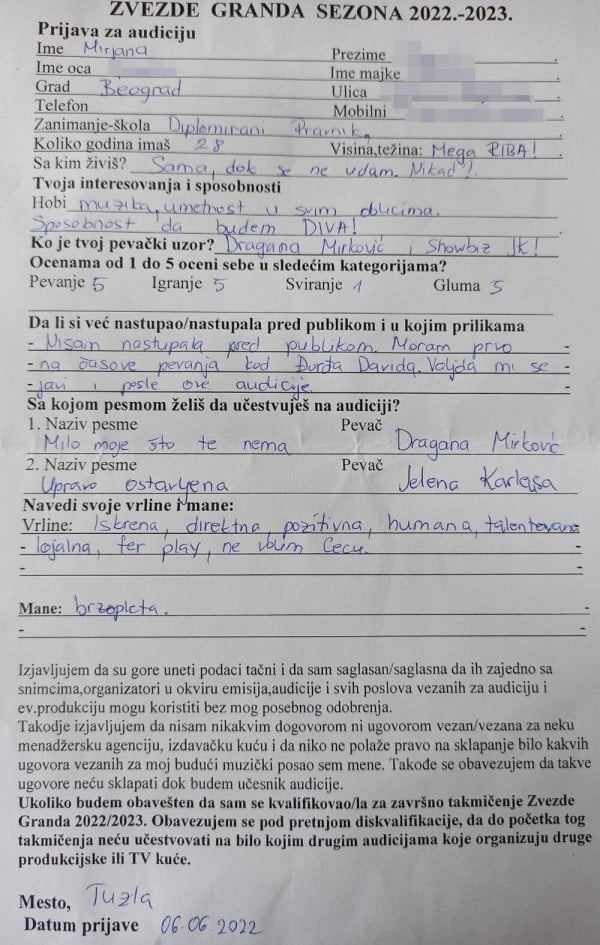 ZVEZDE GRANDA SEZONA 2022.-2023.
Prijava za audiciju
Ime Mirjana Prezime
Ime oca Ime majke
Grad Beograd Ulica
Telefon Mobilni
Zanimanje-škola Diplomirani Pravnik,
Koliko godina imaš 28 Visina,težina: Mega RIBA!
Sa kim živiš? Sama, dok se ne udam. Nikad!
Tvoja interesovanja i sposobnosti
Hobi muzika, umetnost u svim oblicima.
Sposobnost da budem DIVA!
Ko je tvoj pevački uzor? Dragana Mirković i Showbiz JK!
Ocenama od 1 do 5 oceni sebe u sledećim kategorijama?
Pevanje 5 Igranje 5 Sviranje 1 Gluma 5
Da li si već nastupao/nastupala pred publikom i u kojim prilikama
- Nisam nastupala pred publikom. Moram prvo -
- na časove pevanja kod Đurđa Davida. Valjda mi se -
- javi i posle ove audicije. -
Sa kojom pesmom želiš da učestvuješ na audiciji?
1. Naziv pesme Pevač
Milo moje što te nema Dragana Mirković
2. Naziv pesme Pevač
Upravo ostavljena Jelena Karleuša
Navedi svoje vrline i mane:
Vrline: Iskrena, direktna, pozitivna, humana, talentovana
- lojalna, fer play, ne volim Cecu. -
- -
Mane: brzopleta. -
- -
Izjavljujem da su gore uneti podaci tačni i da sam saglasan/saglasna da ih zajedno sa
snimcima,organizatori u okviru emisija,audicije i svih poslova vezanih za audiciju i
ev.produkciju mogu koristiti bez mog posebnog odobrenja.
Takodje izjavljujem da nisam nikakvim dogovorom ni ugovorom vezan/vezana za neku
menadžersku agenciju, izdavačku kuću i da niko ne polaže pravo na sklapanje bilo kakvih
ugovora vezanih za moj budući muzički posao sem mene. Takođe se obavezujem da takve
ugovore neću sklapati dok budem učesnik audicije.
Ukoliko budem obavešten da sam se kvalifikovao/la za završno takmičenje Zvezde
Granda 2022/2023. Obavezujem se pod pretnjom diskvalifikacije, da do početka tog
takmičenja neću učestvovati na bilo kojim drugim audicijama koje organizuju druge
produkcijske ili TV kuće.
Mesto, Tuzla
Datum prijave 06.06.2022